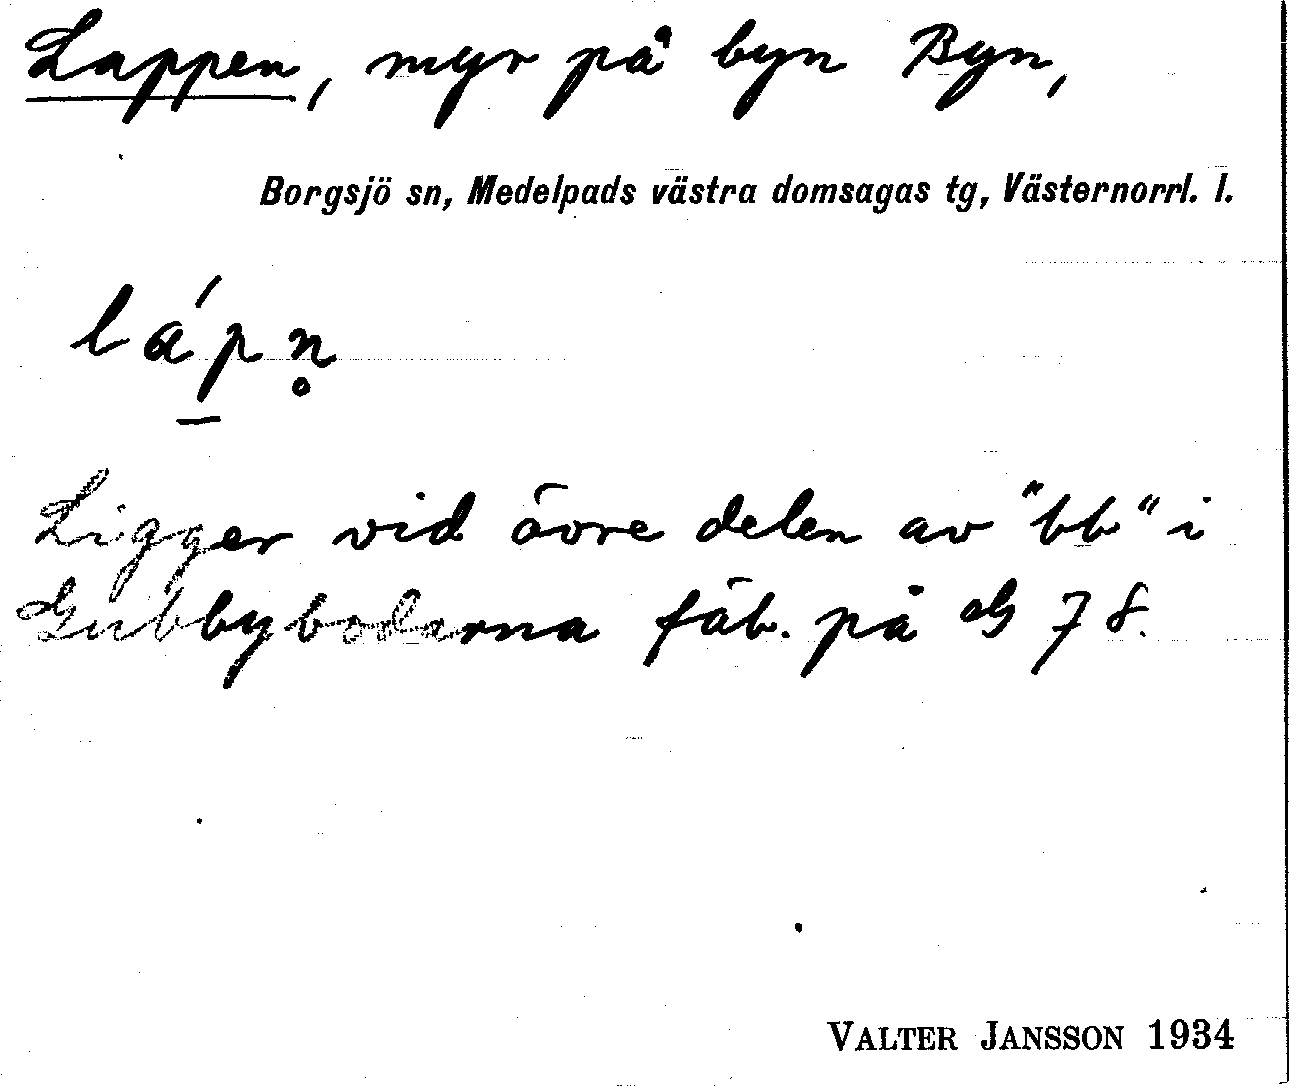 Lappen, myr på byn Byn,
Borgsjö sn, Medelpads västra domsagas tg, Västernorrl. l.
láp̠n̥
Ligger vid övre delen av "bb" i
Gubbybodarna fäb. på G 78.
VALTER JANSSON 1934